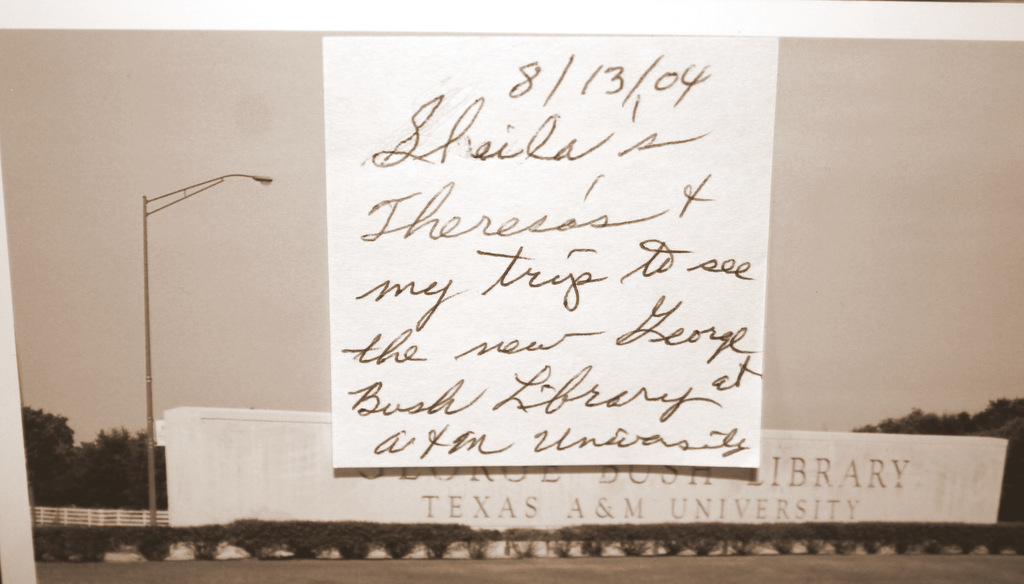 8/13/04
Sheila's
Theresa's +
my trip to see
the new George
Bush Library at
a + m University
GEORGE BUSH LIBRARY
TEXAS A&M UNIVERSITY